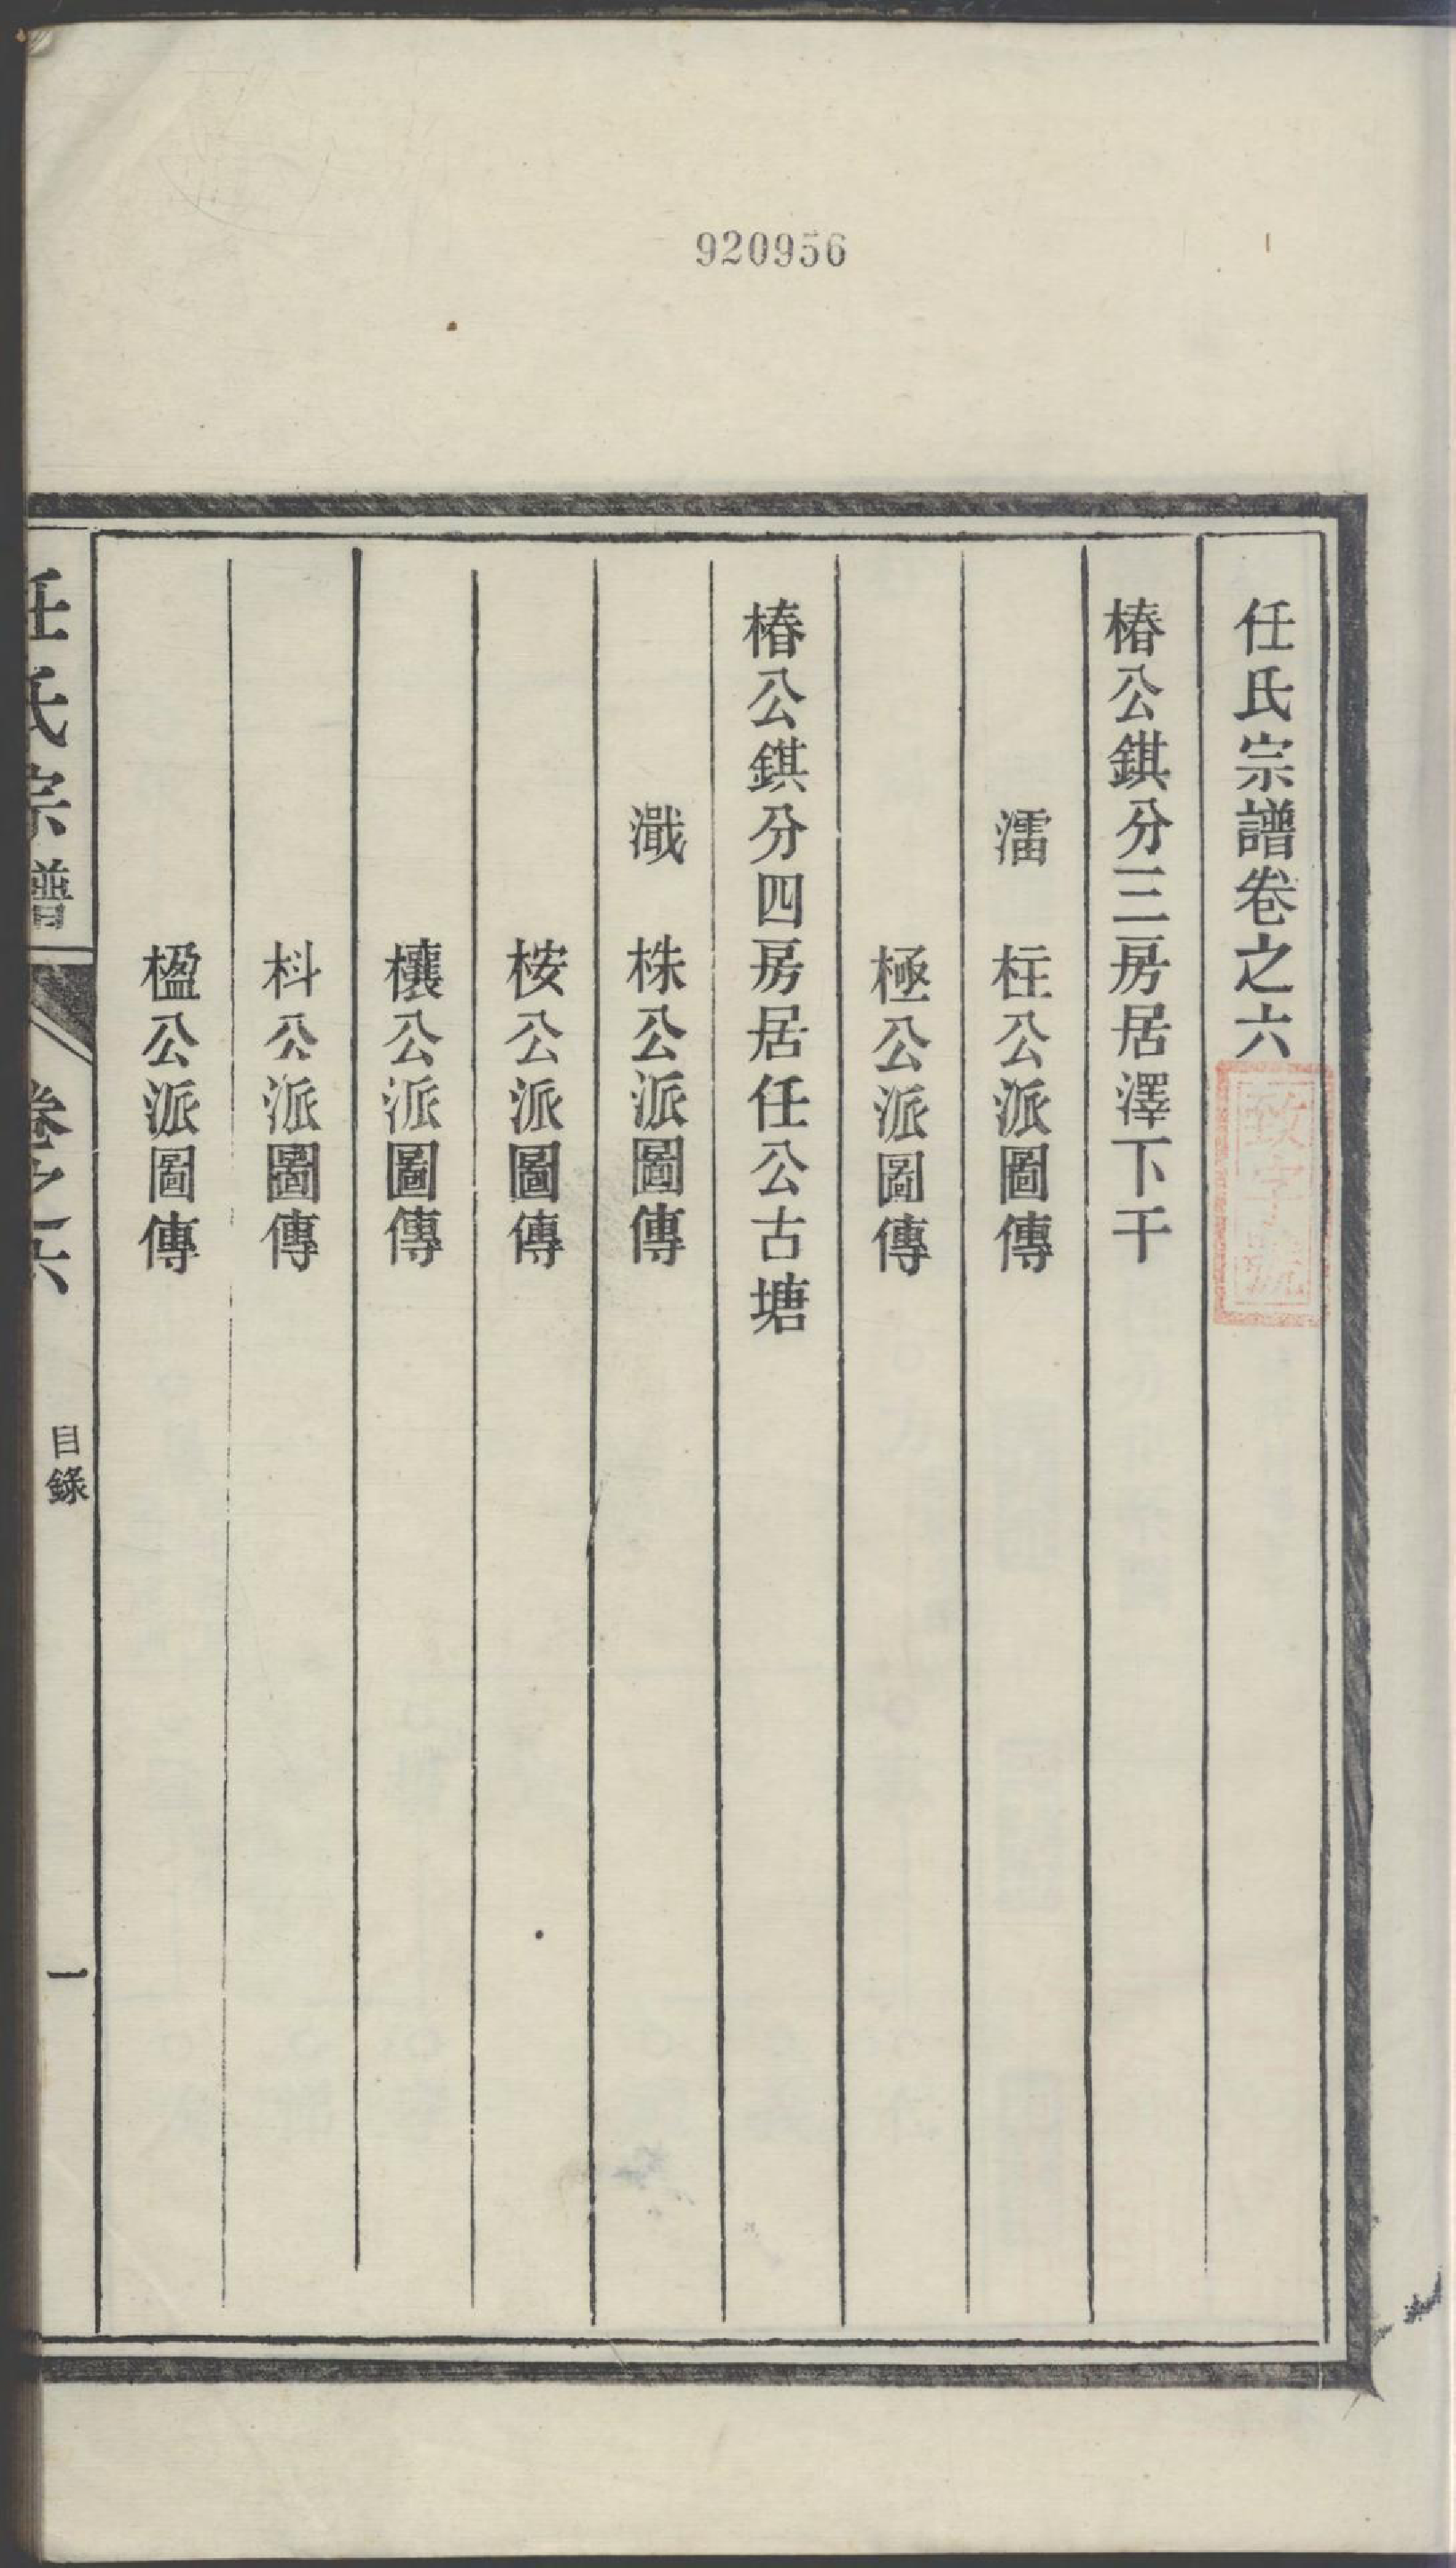 920956
任氏宗譜卷之六
致字號
椿公錤分三房居澤下干
澑 柱公派圖傳
極公派圖傳
椿公錤分四房居任公古塘
濈 株公派圖傳
桉公派圖傳
欀公派圖傳
枓公派圖傳
楹公派圖傳
任氏宗譜
卷之六
目錄
一